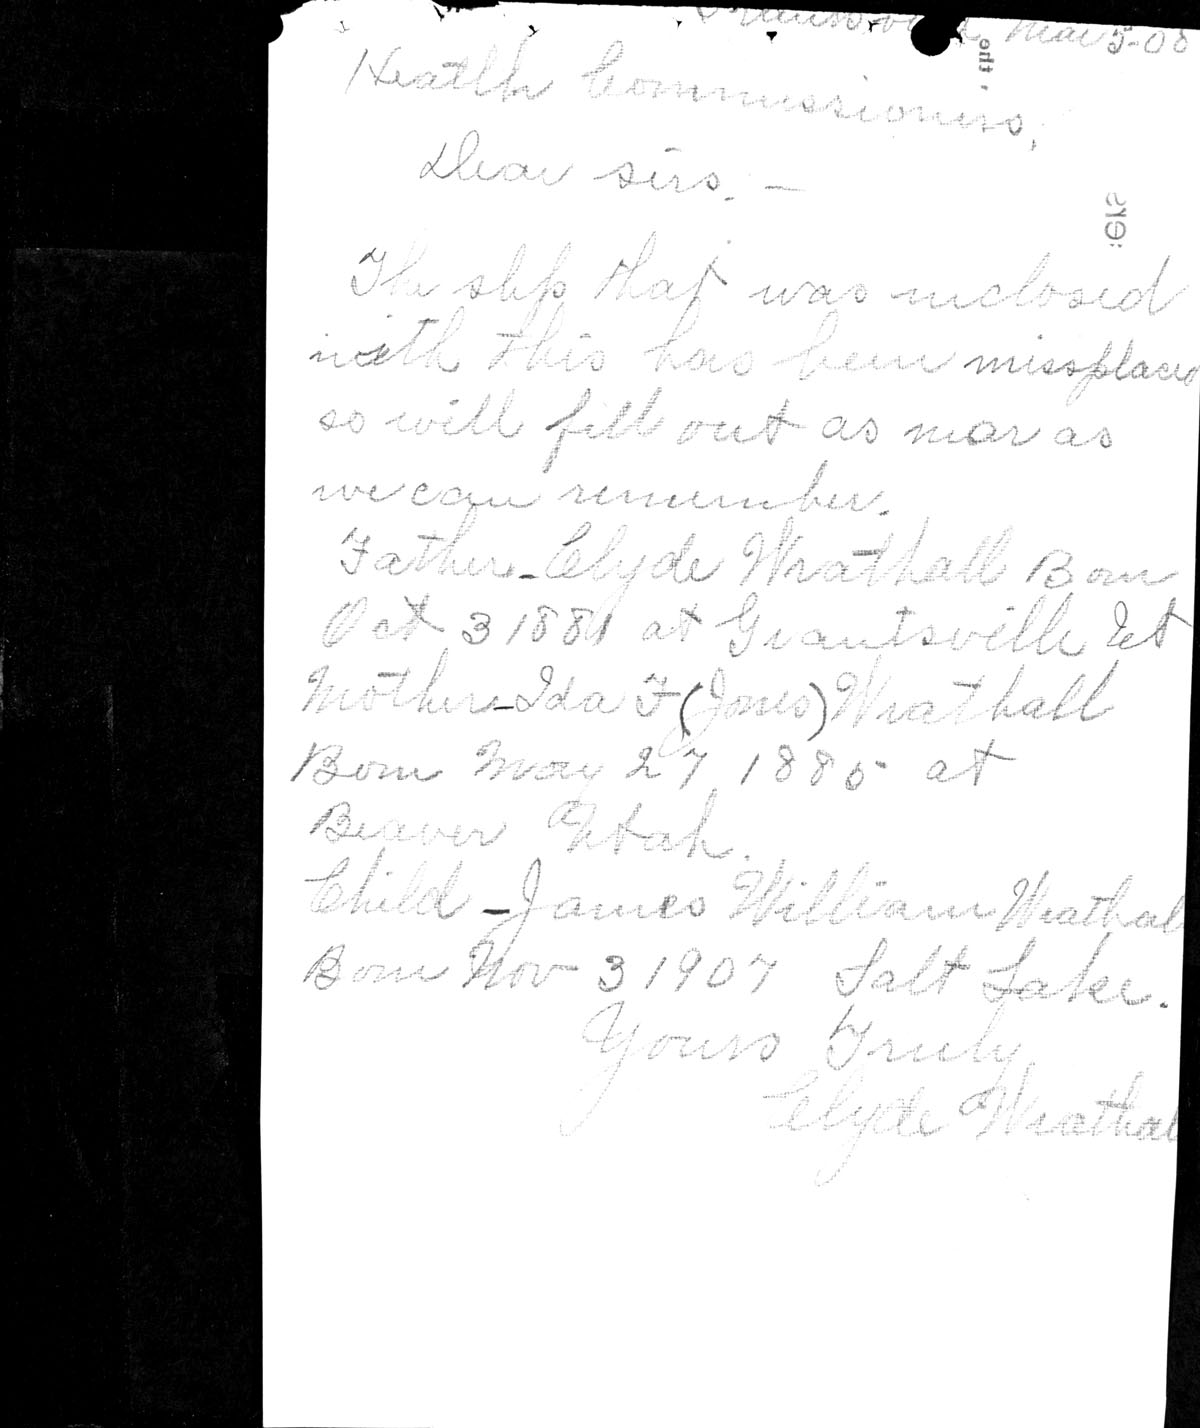 Grantsville Mar 5-08
Health Commissioners,
Dear sirs. —
The slip that was inclosed
with this has been missplaced
so will fill out as near as
we can remember.
Father - Clyde Wrathall Born
Oct 3 1881 at Grantsville Ut
Mother - Ida F (Jones) Wrathall
Born May 27 1885 at
Beaver Utah.
Child - James William Wrathal
Born Nov 3 1907 Salt Lake.
Yours Truly
Clyde Wrathal